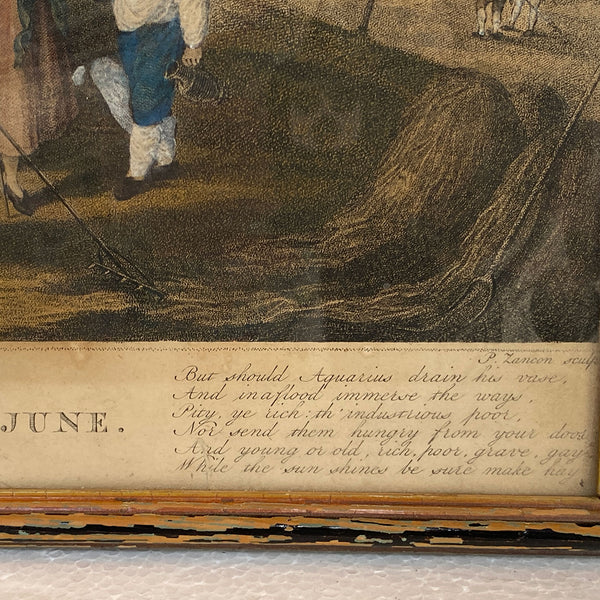 P. Zancon sculp
But should Aquarius drain his vase,
And in a flood immerse the ways,
Pity, ye rich th' industrious poor,
JUNE.
Nor send them hungry from your door
And young or old, rich, poor, grave, gay
While the sun shines be sure make hay